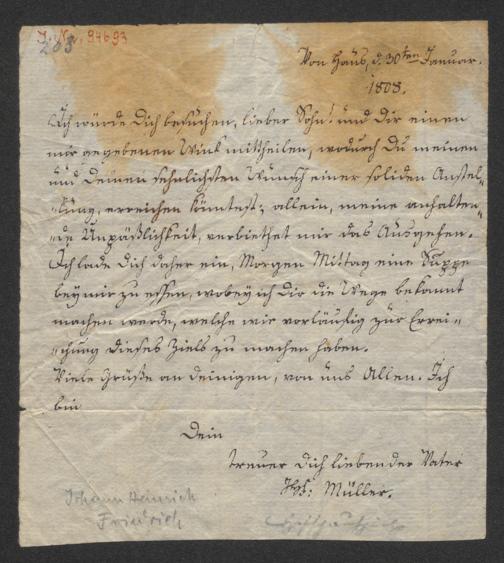 I. N. 94693
203
Von Haus, d. 30ten Januar.
1808.
Ich würde Dich besuchen, lieber Sohn! und Dir einen
mir gegebenen Wink mittheilen, wodurch Du meinen
und Deinen sehnlichsten Wunsch einer soliden Anstel-
-lung, erreichen könntest; allein, meine anhalten-
-de Unpäßlichkeit, verbiethet mir das Ausgehen.
Ich lade Dich daher ein, Morgen Mittag eine Suppe
bey mir zu essen, wobey ich Dir die Wege bekannt
machen werde, welche wir vorläufig zur Errei-
-chung dieses Ziels zu machen haben.
Viele Grüße an deinigen, von uns Allen. Ich
bin
Dein
treuer Dich liebender Vater
Müller.
Johann Heinrich
Friedrich